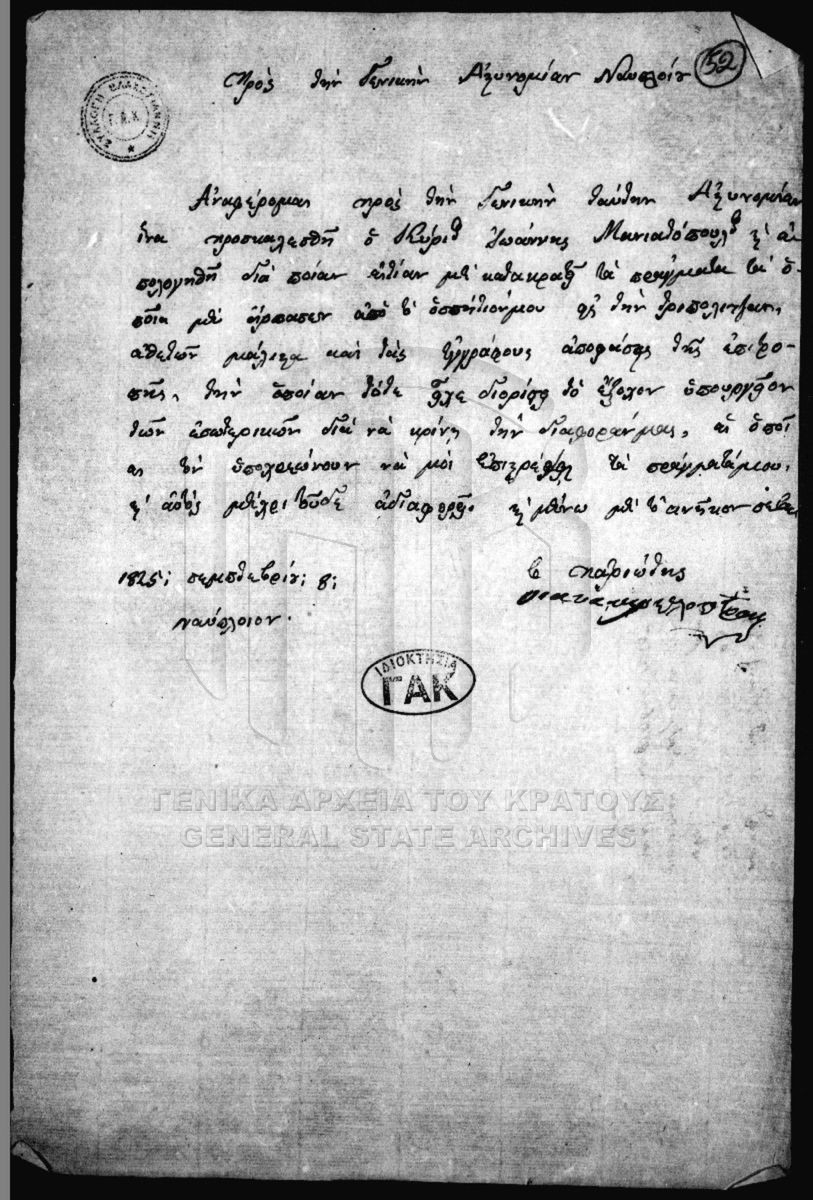 52
Πρὸς τὴν Γενικὴν Ἀστυνομίαν Ναυπλίου
ΣΥΛΛΟΓΗ ΒΛΑΧΟΓΙΑΝΝΗ
Γ.Α.Κ.
Ἀναφέρομαι πρὸς τὴν Γενικὴν ταύτην Ἀστυνομίαν
ἵνα προσκαλεσθῇ ὁ Κύριος Ἰωάννης Μανιατόπουλος καὶ ἀ
πολογηθῇ διὰ ποίαν αἰτίαν μὲ κατακρατεῖ τὰ πράγματα τὰ ὁ-
ποῖα μὲ ἥρπασεν ἀπὸ τὸ ὁσπήτιόνμου εἰς τὴν τριπολιτζὰν,
ἀθετῶν μάλιστα καὶ τὰς ἐγγράφους ἀποφάσεις τῆς ἐπιτρο-
πῆς, τὴν ὁποίαν τότε εἶχε διορίσει τὸ ἔξοχον ὑπουργεῖον
τῶν ἐσωτερικῶν διὰ νὰ κρίνῃ τὴν διαφοράνμας, αἱ ὁποῖ
αι τὸν ὑποχρεώνουν νὰ μοὶ ἐπιστρέψῃ τὰ πράγματάμου,
καὶ αὐτὸς μέχρι τοῦδε ἀδιαφορεῖ. καὶ μένω μὲ τὸ ἀνῆκον σέβας
1825; σεπτεβρίου; 8;
ναύπλοιον.
ὁ πατριώτης
ΙΔΙΟΚΤΗΣΙΑ
ΓΑΚ
ΓΕΝΙΚΑ ΑΡΧΕΙΑ ΤΟΥ ΚΡΑΤΟΥΣ
GENERAL STATE ARCHIVES